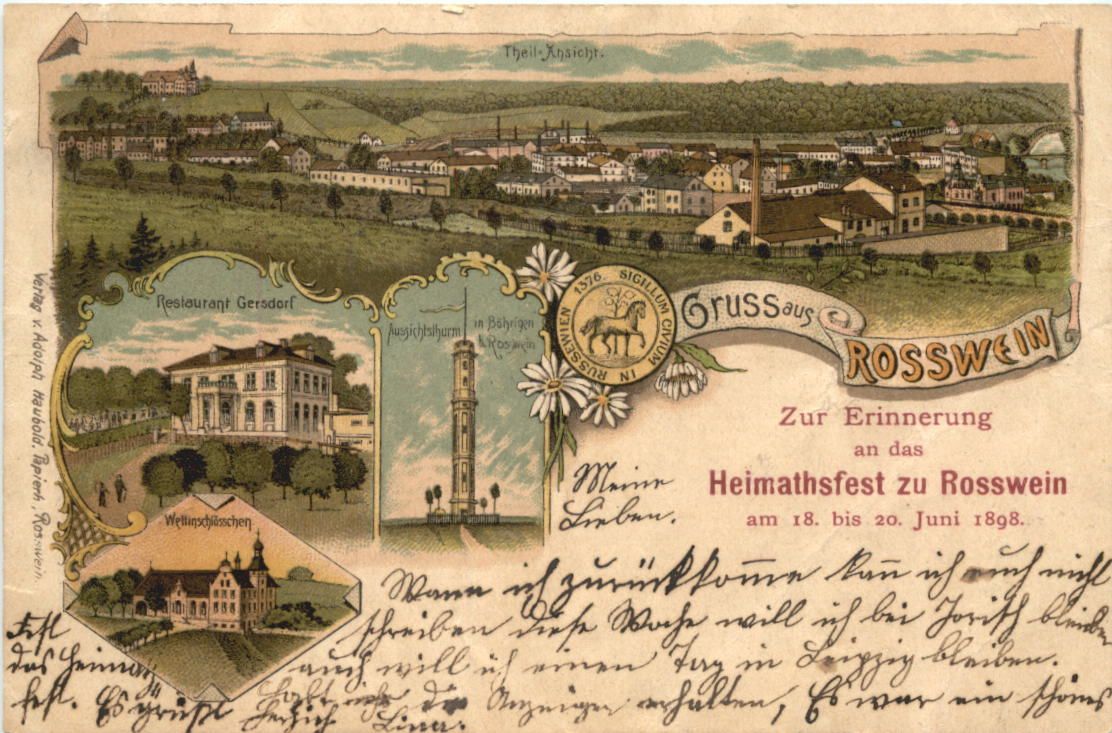 Theil-Ansicht.
Restaurant Gersdorf
Aussichtsthurm in Böhrigen
b. Rosswein
1376. SIGILLUM CIVIUM IN RUSSEWIEN
Gruss aus
ROSSWEIN
Zur Erinnerung
an das
Heimathsfest zu Rosswein
am 18. bis 20. Juni 1898.
Wettinschlösschen
Verlag v. Adolph Haubold, Papierh., Rosswein.
Meine
Lieben.
Wann ich zurückkomme kann ich auch nicht
schreiben diese Woche will ich bei bleiben
auch will ich einen Tag in Leipzig bleiben.
Habt die Anzeigen erhalten, Es war ein schönes
das
fest. Es grüßt herzlich